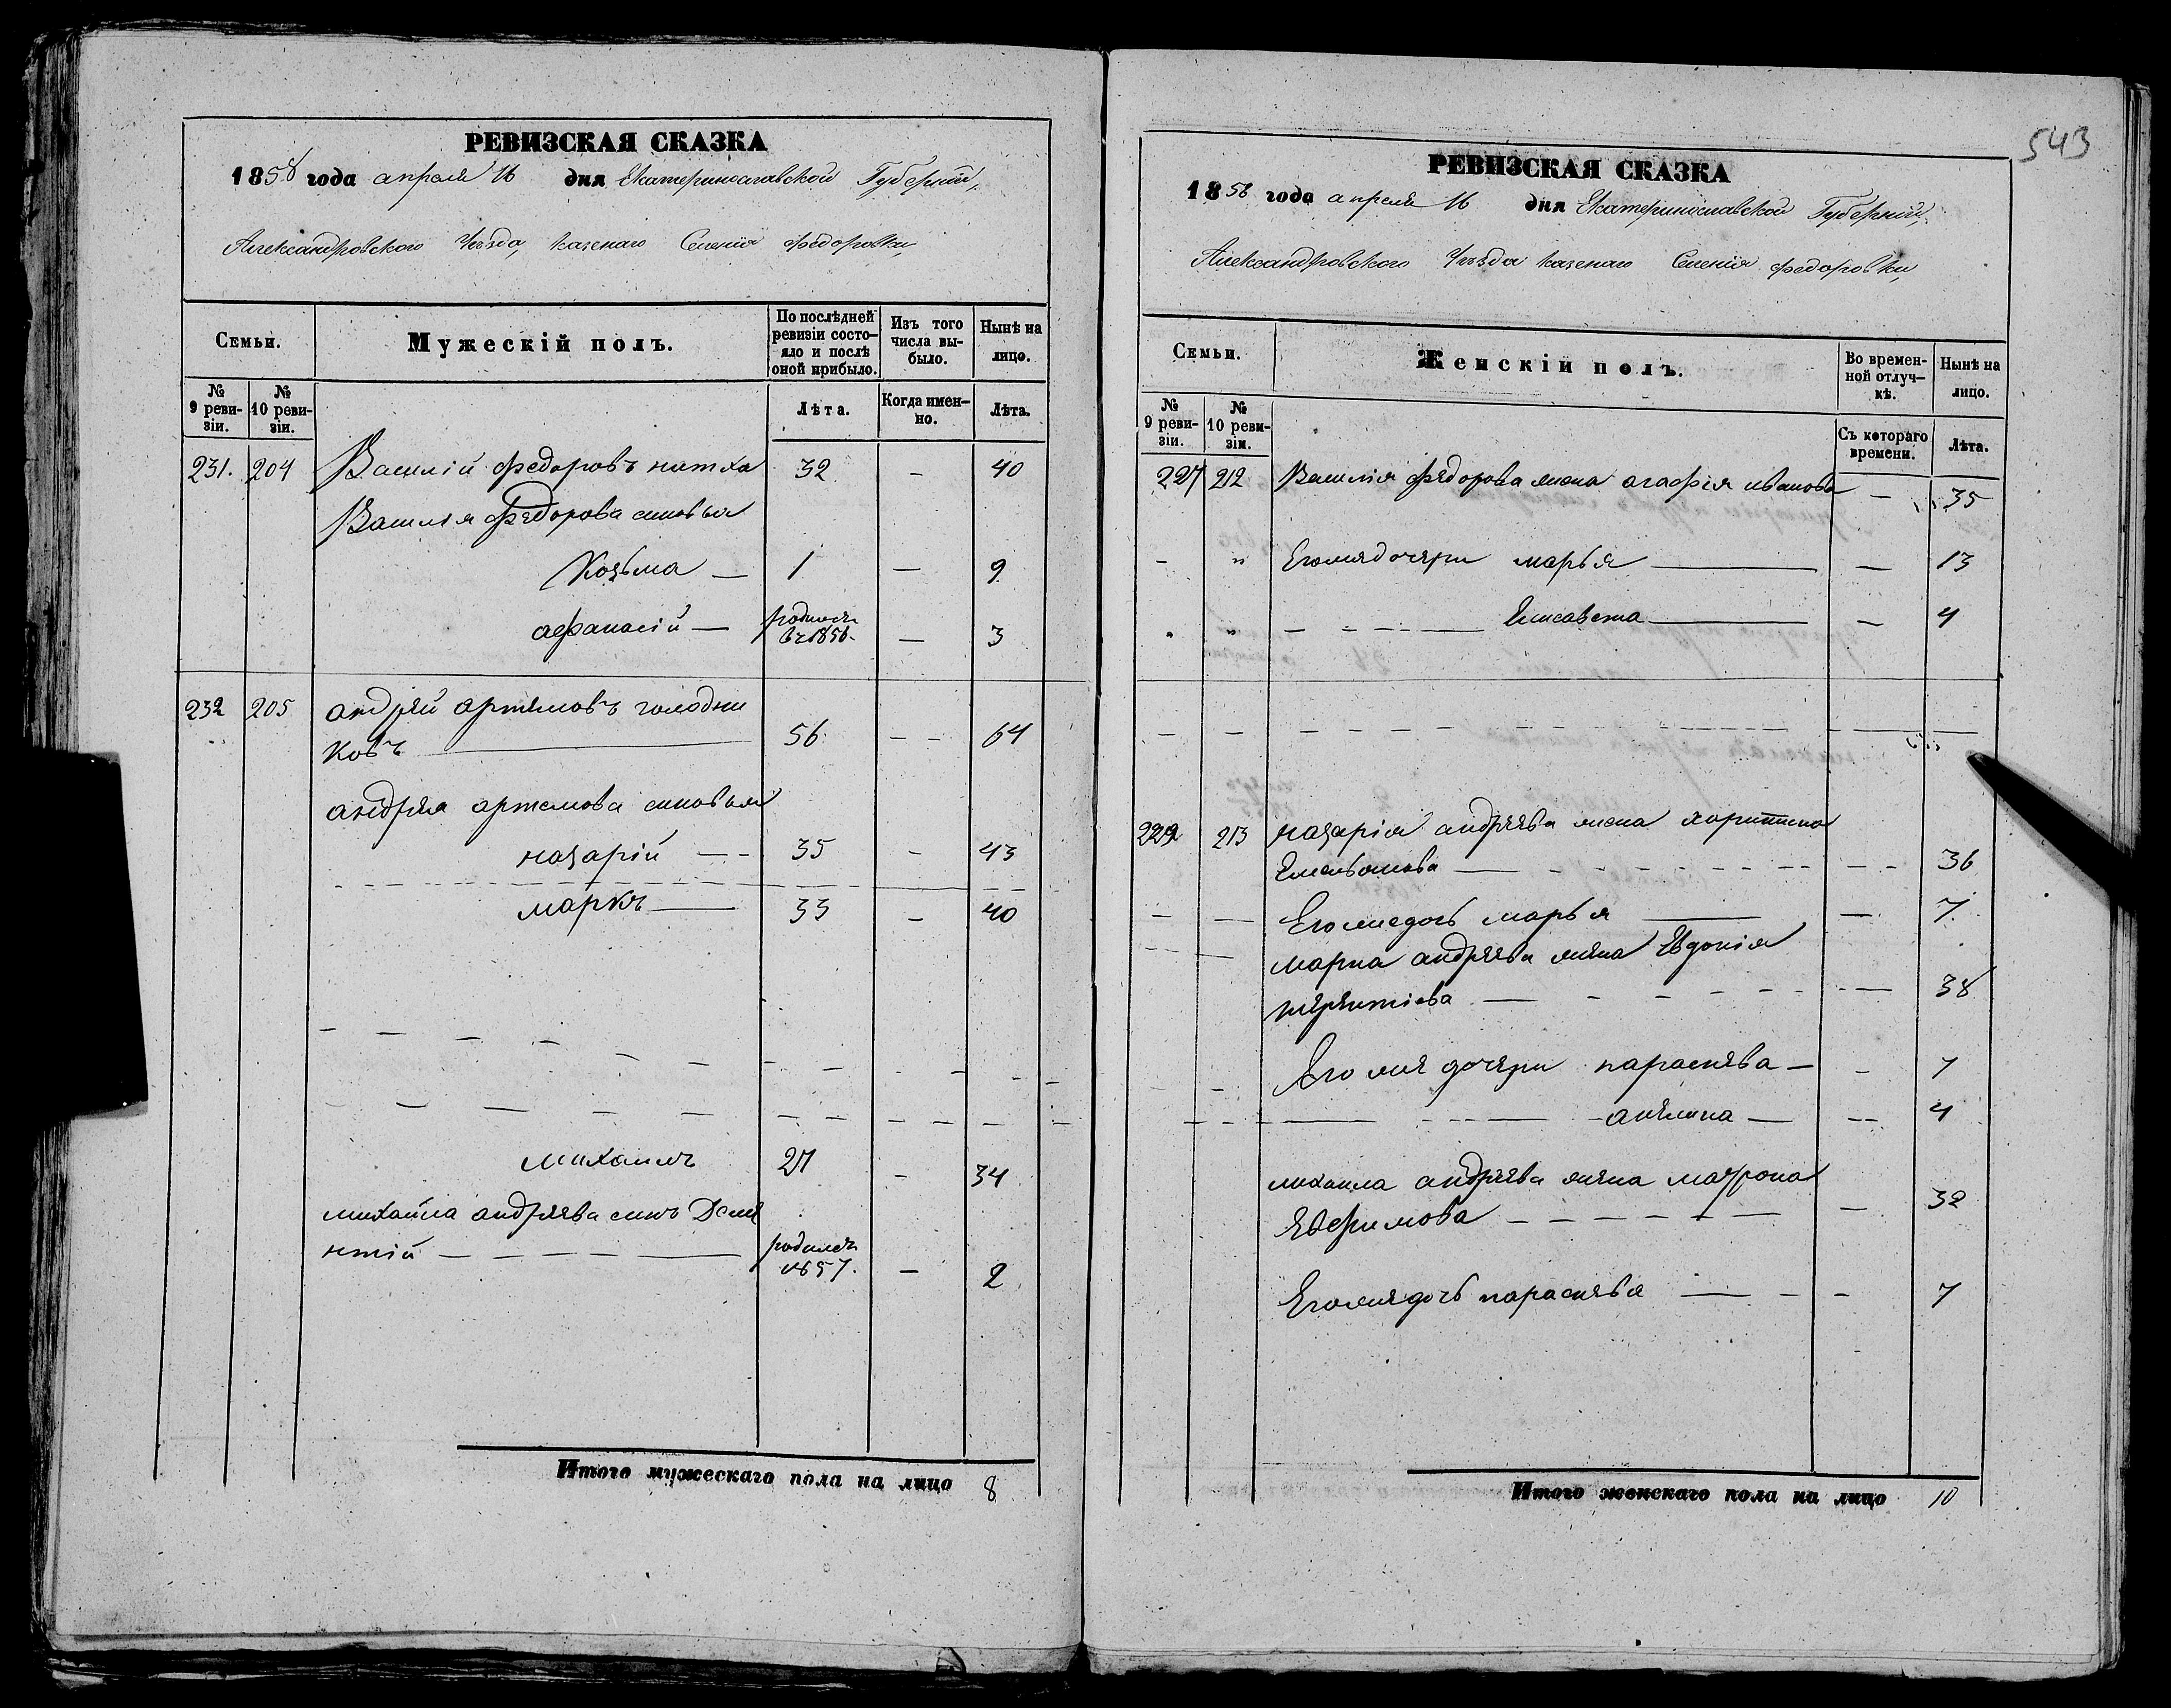 РЕВИЗСКАЯ СКАЗКА
1858 года апреля 16 дня Екатеринославской Губерніи,
Александровского Уезда, казенаго Селенія Федоровки,
Семьи.
Мужескій полъ.
По послѣдней ревизіи состояло и послѣ оной прибыло.
Изъ того числа выбыло.
Нынѣ на лицо.
№ 9 ревизіи.
№ 10 ревизіи.
Лѣта.
Когда именно.
Лѣта.
231. 204 Василій Федоровъ 32 — 40
Василия Федорова сыновья
Козьма — 1 — 9
афанасій — родился въ 1856. — 3
232 205 андрей артемовъ голодни
ковъ — 56 — — 64
андрея артемова сыновья
назарій — - 35 - 43
маркъ — 33 - 40
михаилъ 27 - 34
михаила андреева сынъ
нтій — родился 1857. — 2
Итого мужескаго пола на лицо 8
543
РЕВИЗСКАЯ СКАЗКА
1858 года апреля 16 дня Екатеринославской Губерніи,
Александровского Уезда казенаго Селенія Федоровки,
Семьи.
Женскій полъ.
Во временной отлучкѣ.
Нынѣ на лицо.
№ 9 ревизіи.
№ 10 ревизіи.
Съ котораго времени.
Лѣта.
227 212 Василія Федорова жена агафія иванова — 35
Егожедочери марья — — 13
Елисавета — — 4
213 назарія андреева жена харитина
Емельянова — 36
Егожедочь марья — — 7
марка андреева жена Евдокія
терентіева — 38
Его же дочери параскева — - 7
акилина — -- 4
михаила андреева жена матрона
Ефимова — 32
Егожедочь параскева — - 7
Итого женскаго пола на лицо 10